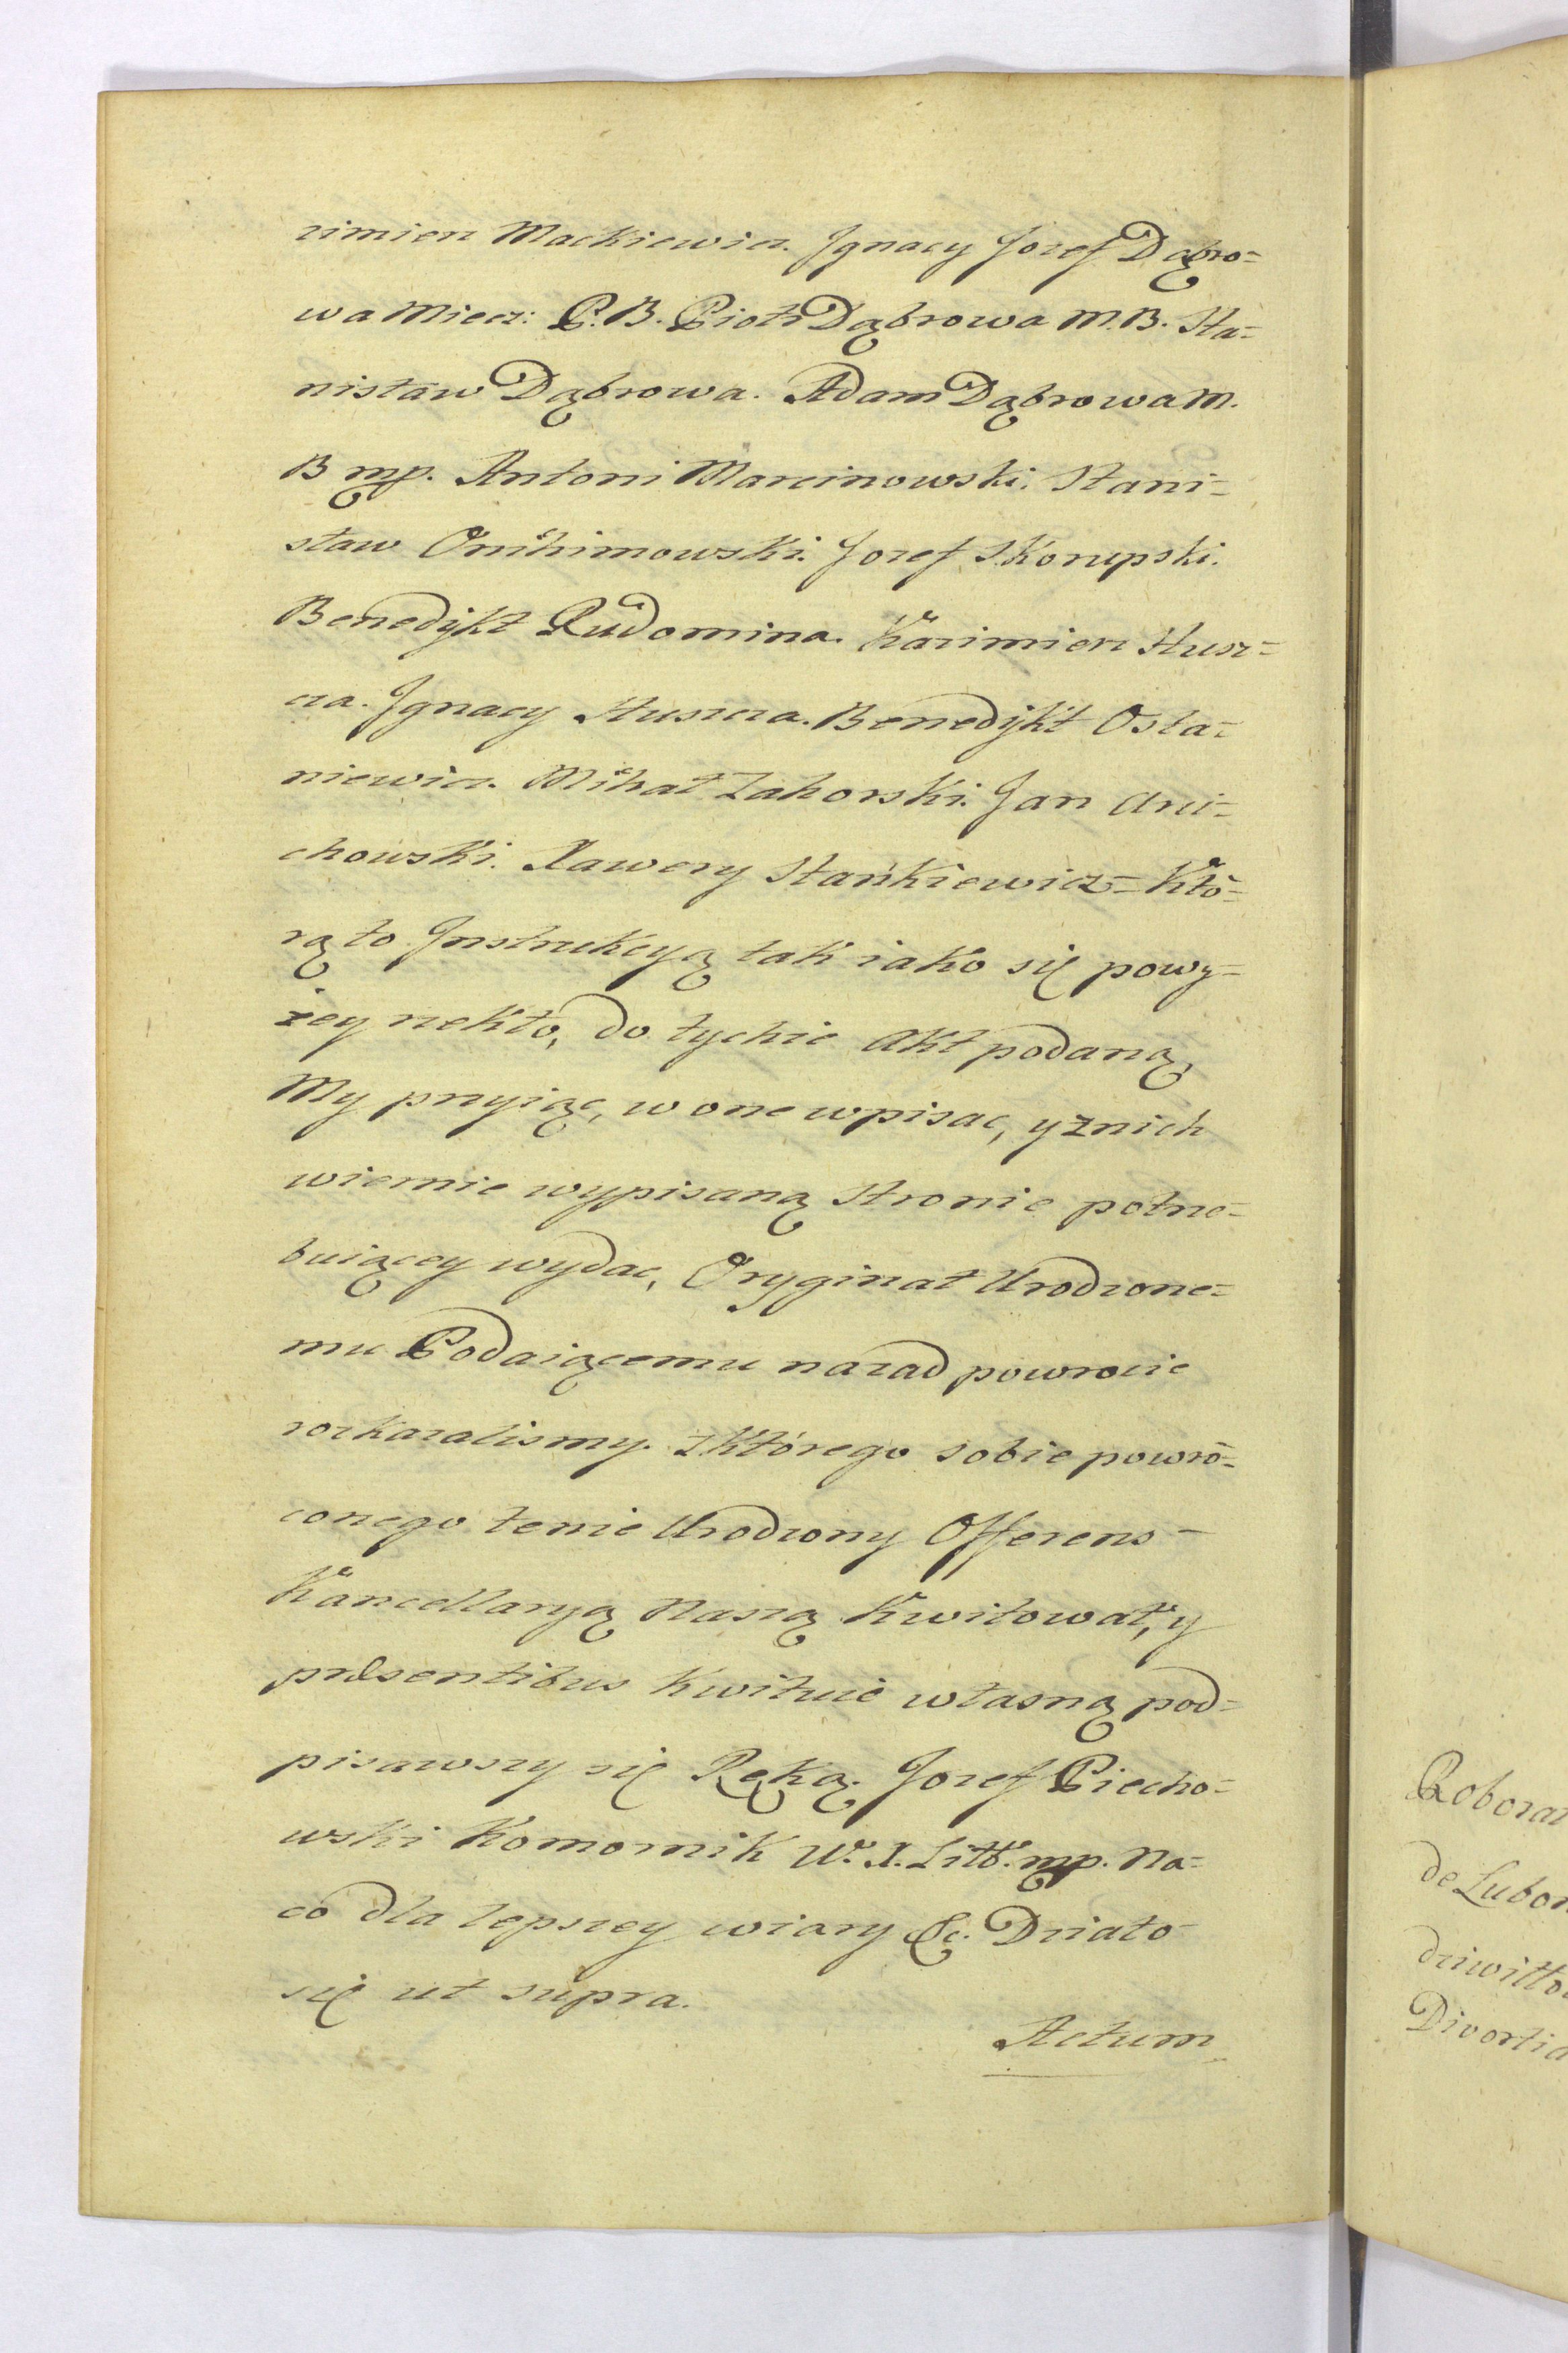 zimierz Mackiewicz. Ignacy Jozef Dąbro=
wa Miecz: P. B. Piotr Dąbrowa M. B. Sta=
nisław Dąbrowa. Adam Dąbrowa M.
B mp. Antoni Marcinowski. Stani=
sław Onichimowski. Jozef Skorupski.
Benedykt Rudomina. Kazimierz Husz=
cza. Ignacy Huszcza. Benedykt Osta=
niewicz. Mihał Zahorski. Jan Ani=
chowski. Xawery Stankiewicz = Któ=
rą to Jnstrukcyą tak iako się powy=
żey rzekło, do tychże Akt podaną
My przyiąc, w one wpisac, y z nich
wiernie wypisaną Stronie potrze=
buiącey wydac, Oryginał Urodzone=
mu Podaiącemu nazad powrocic
rozkazalismy. z którego sobie powró=
conego tenże Urodzony Offerens =
Kancellaryą Naszą kwitował, y
præsentibus kwituie własną pod=
pisawszy się Ręką. Jozef Piecho=
wski Komornik W. X. Litt. mp. Na=
co dla lepszey wiary &c. Działo
się ut supra.
Actum
de Lubor
Divortia